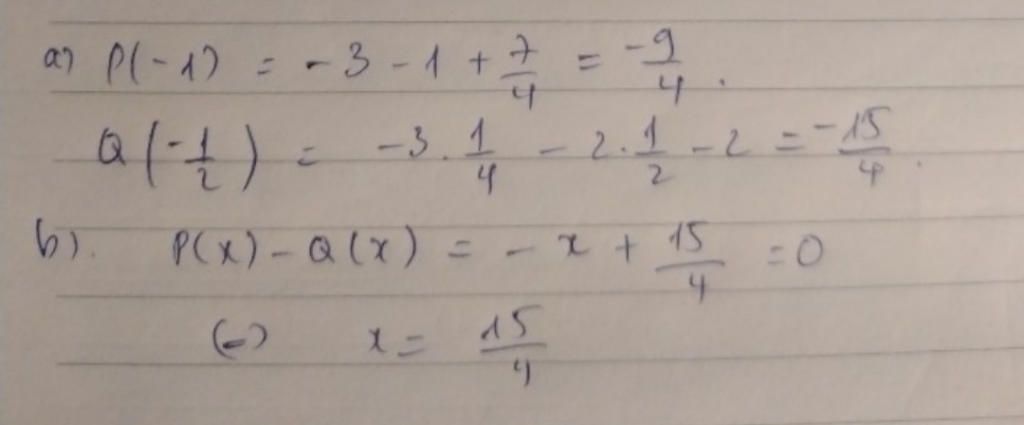 a) P(-1) = -3 - 1 + 7/4 = -9/4.
Q(-1/2) = -3.1/4 - 2.1/2 - 2 = -15/4.
b). P(x) - Q(x) = -x + 15/4 = 0
(=) x = 15/4